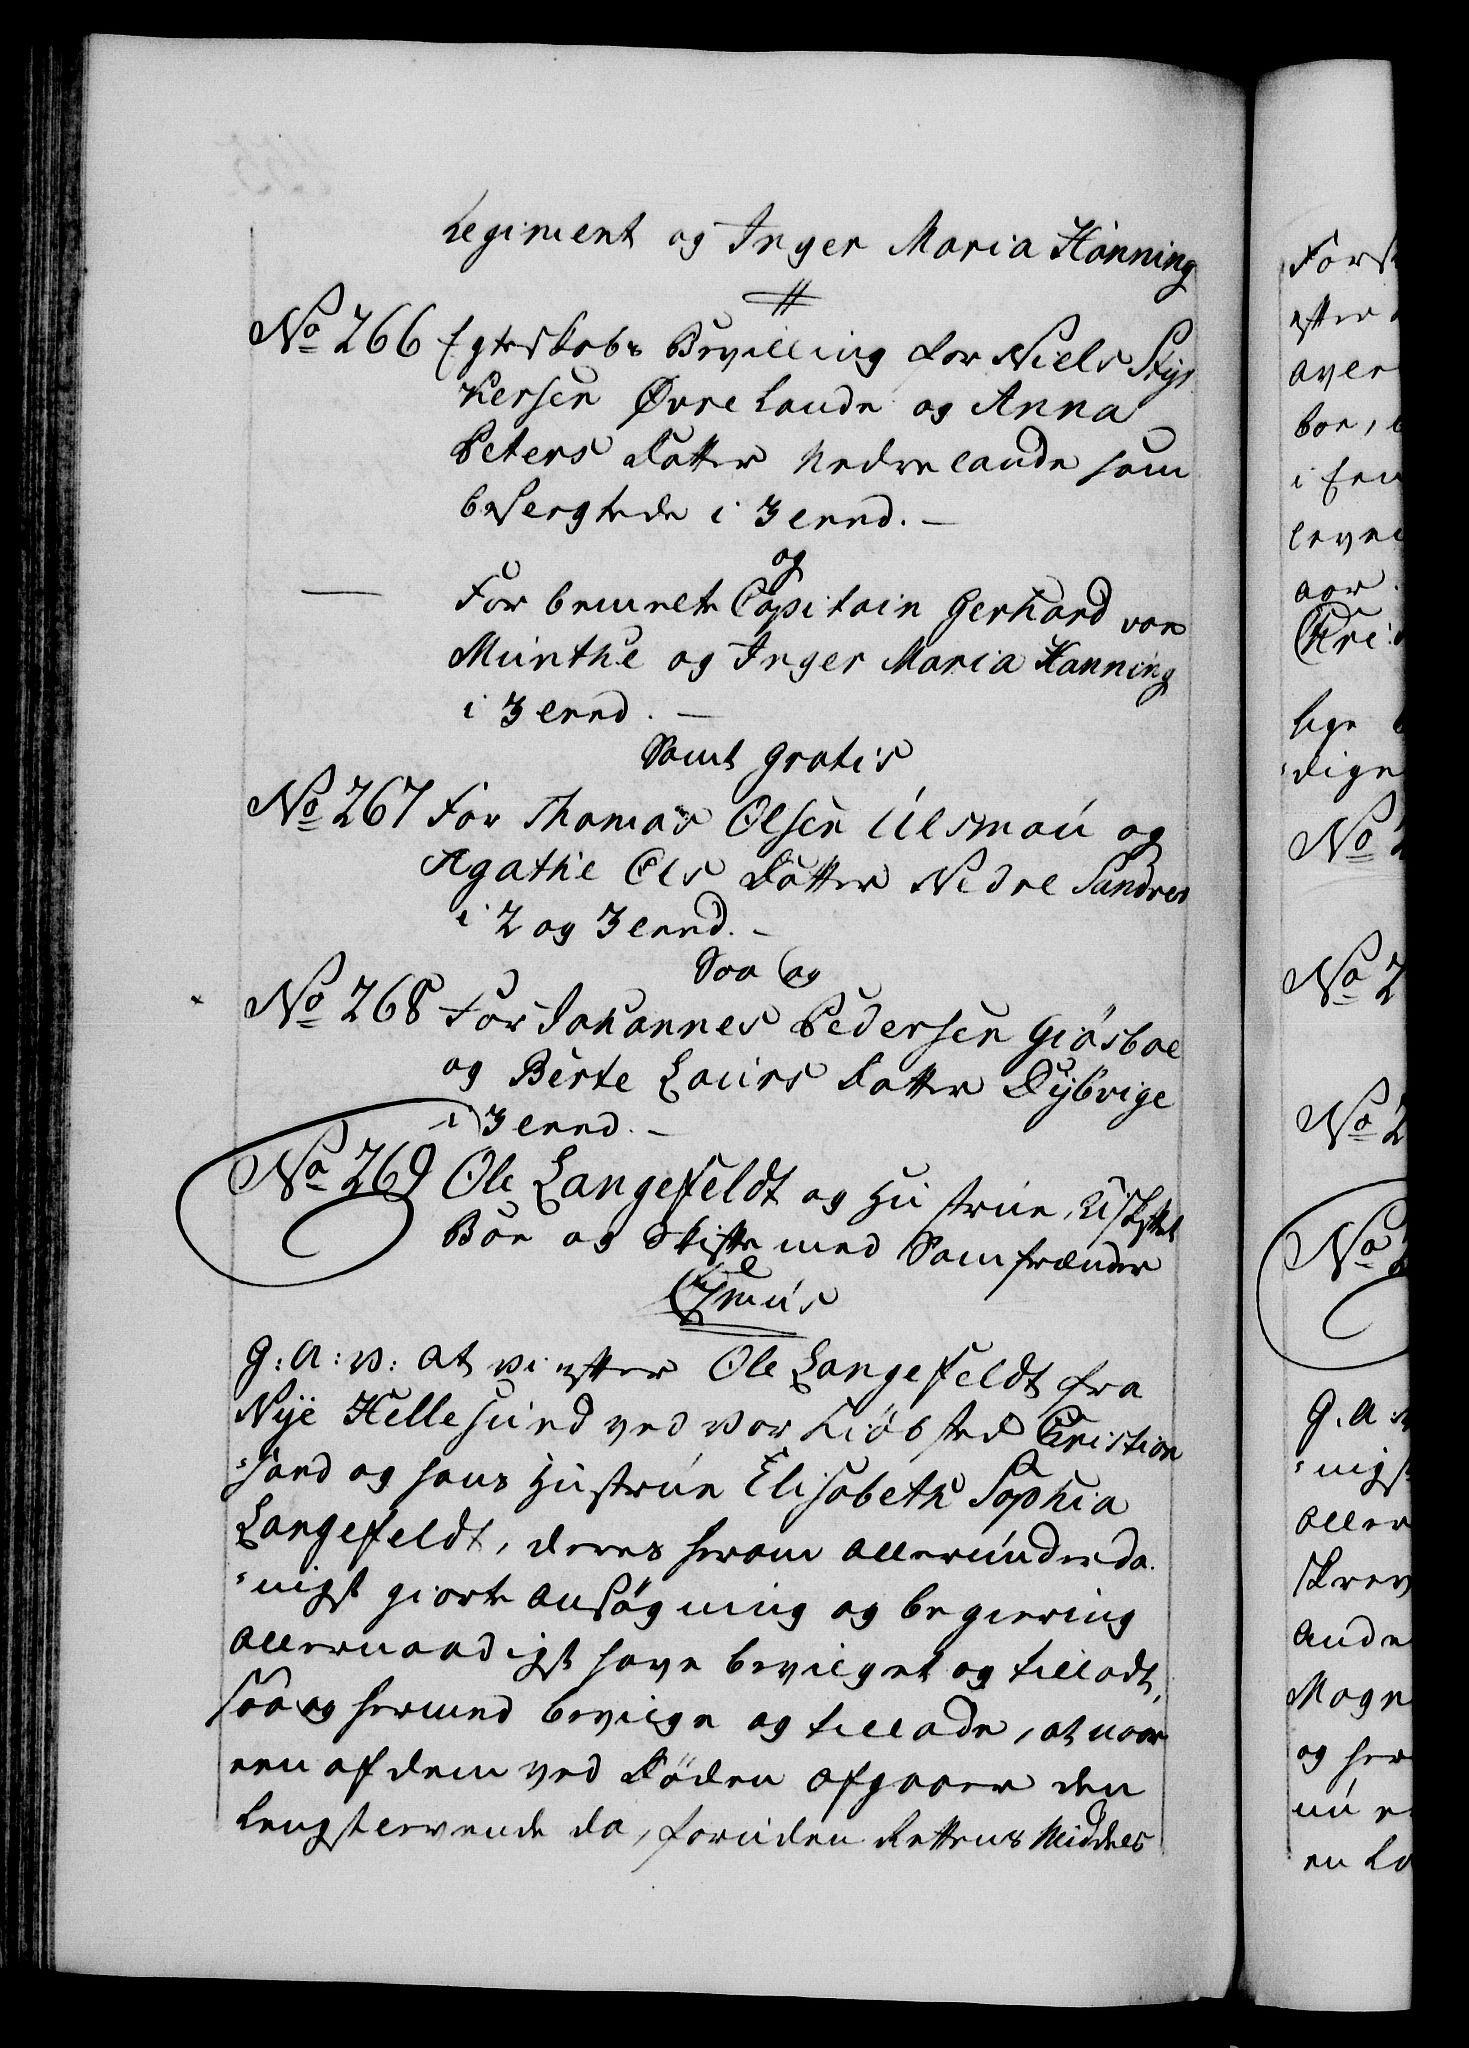 Regiment og Inger Maria Hanning
No 266 Egteskabs Bevilling for Niels Styr
kersen Øvrelande og Anna
Peters Datter Nedrelande som
besvergtede i 3 leed.
og
For bemelte Capitain Gerhard von
Münthe og Inger Maria Hanning
i 3 leed.
Samt gratis
No 267 For Thomas Olsen Ulsmau og
Agathe Ols Datter Nedre Sandred
i 2 og 3 leed.
Saa og
No 268 For Johannes Pedersen Giøsboe
og Berte Laurs Datter Dybvige
i 3 leed.
No 269 Ole Langefeldt og Hustrue, Uskiftet
Boe og Skifte med Samfrænder
G: A: V: at vi efter Ole Langefeldt fra
Nye Hellesund ved vor Kiøbsted Christian
sand og hans Hustrue Elisabeth Sophia
Langefeldt, deres herom allerunderda
nigst giorte Ansøgning og begiering
allernaadigst have bevilget og tilladt,
saa og hermed bevilge og tillade, at naar
een af dem ved Døden afgaaer den
Længstlevende da, foruden Rettens Middels